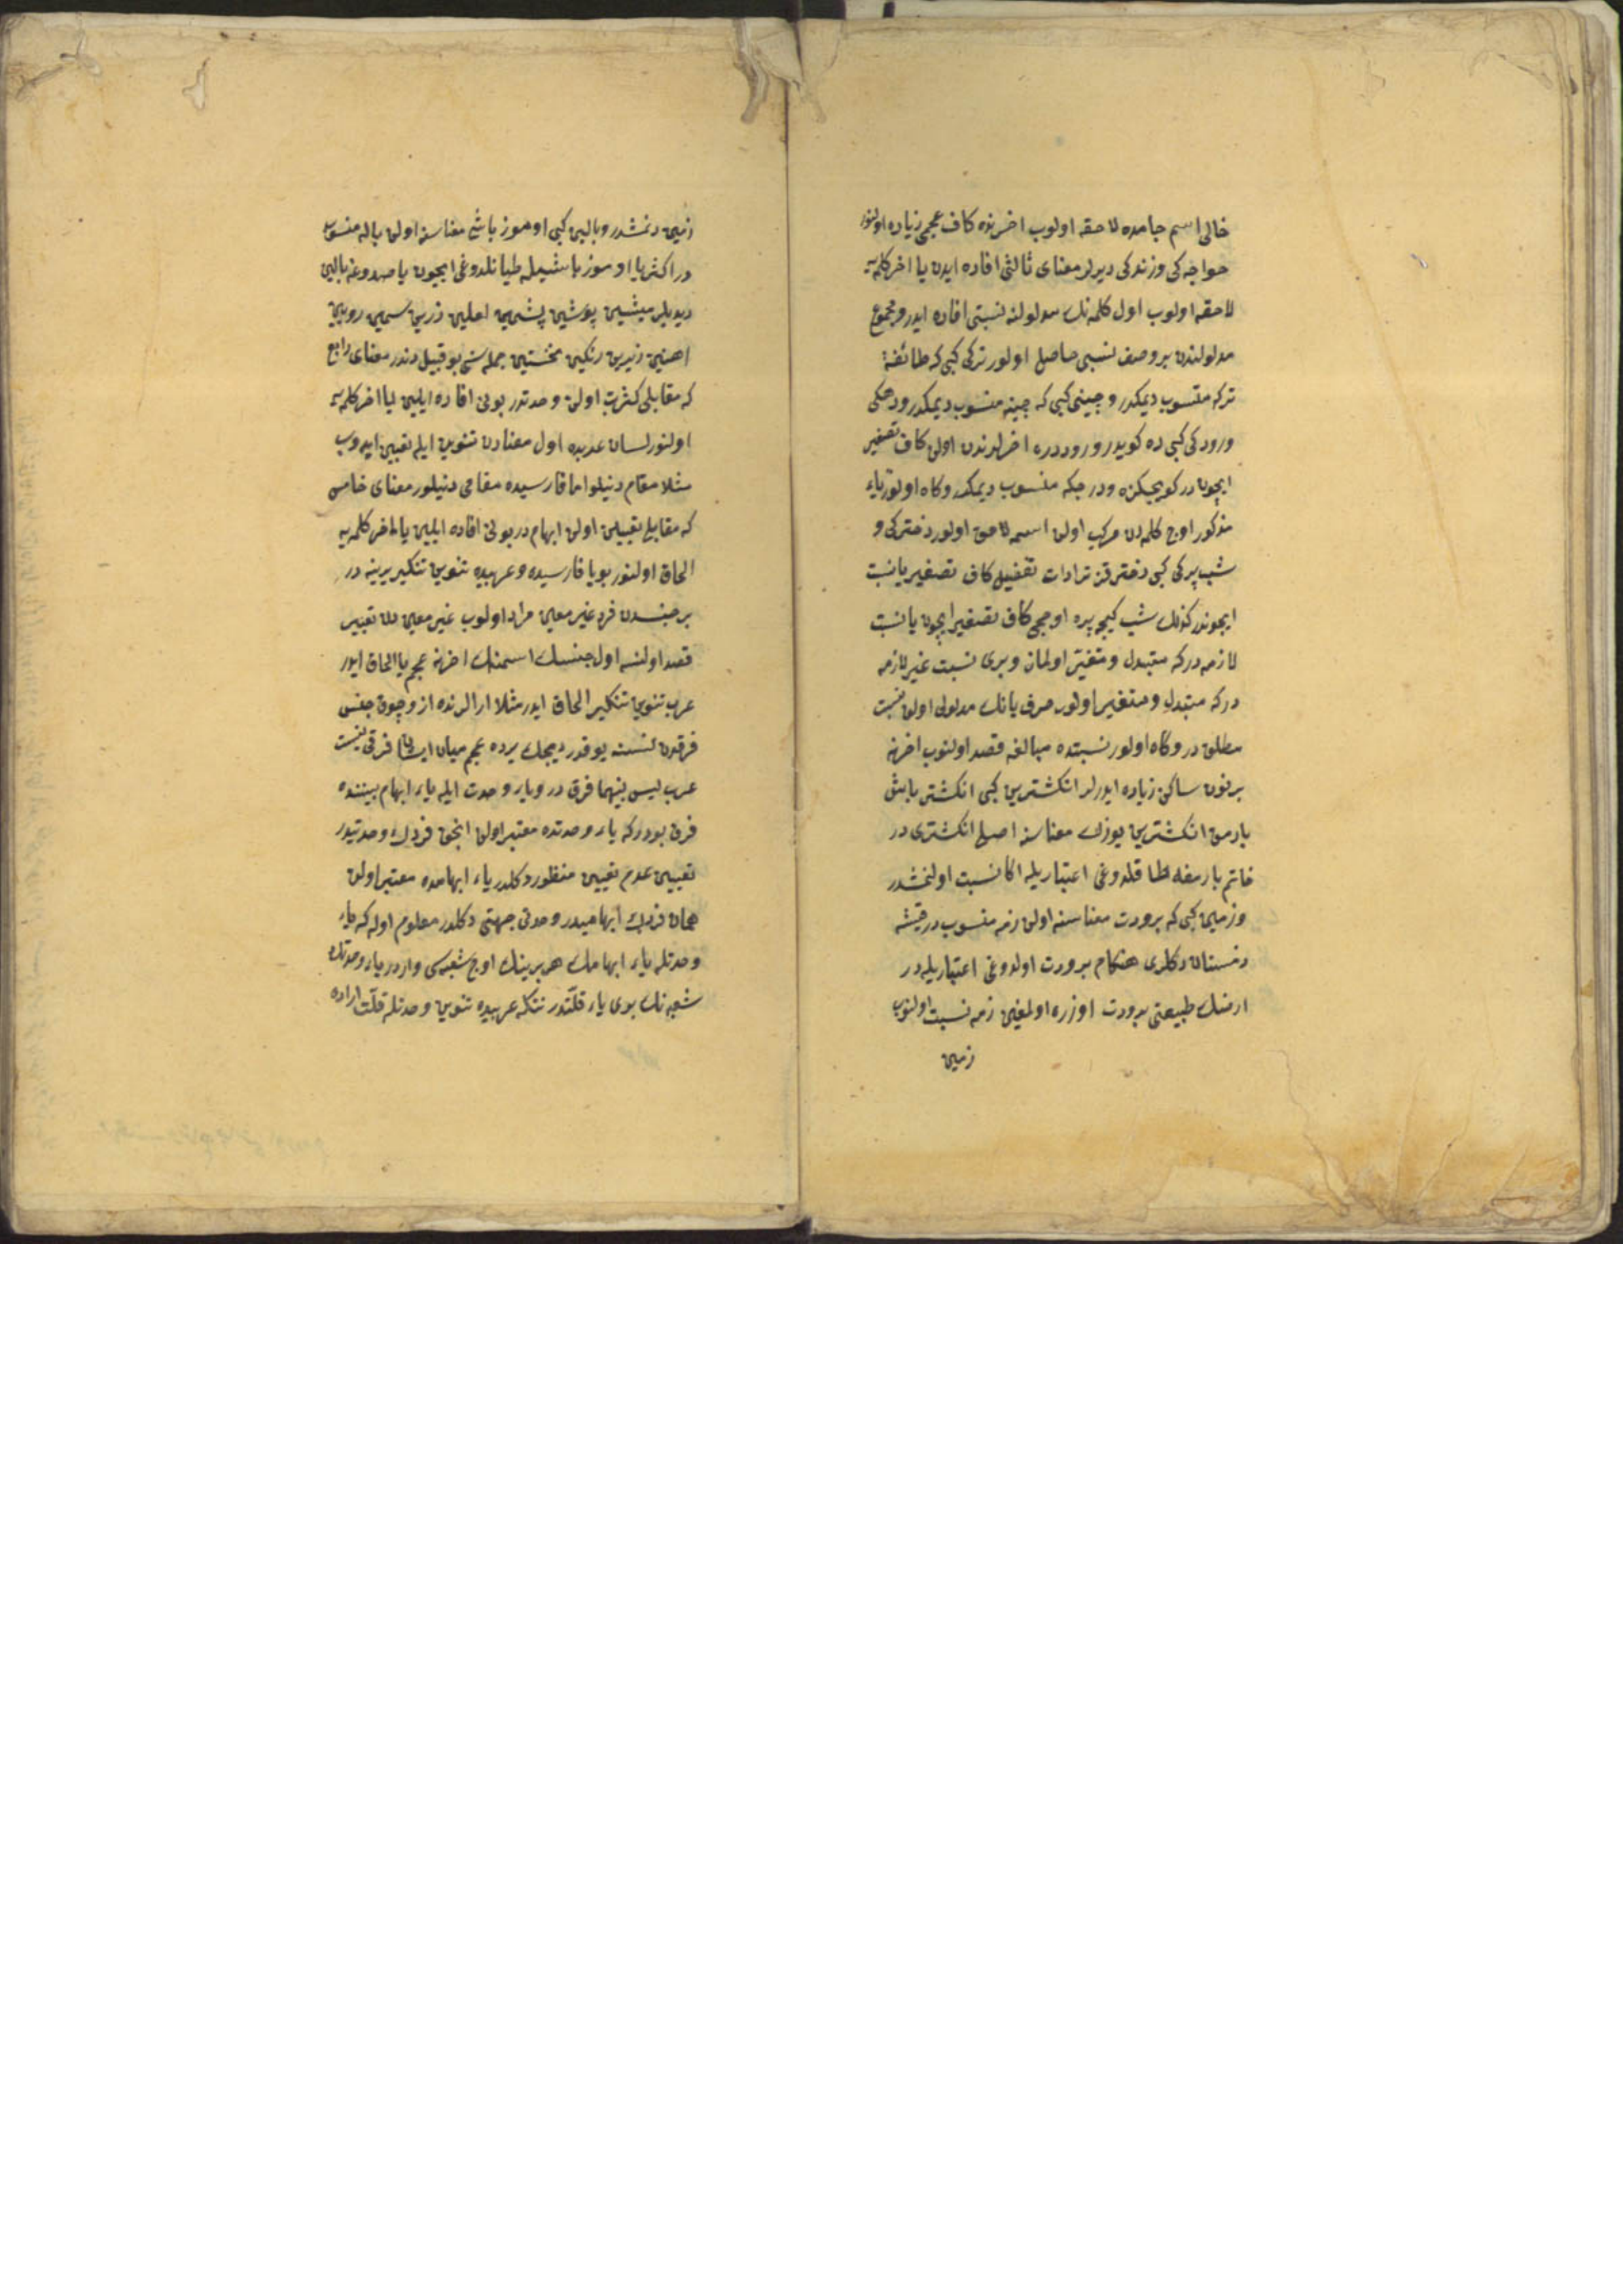 خالی اسم جامده لاحقه اولوب اخرنده كاف عجمی زیاده اولنور
خواجه كی وزندكی دیرلر معنای ثالثی افاده ایدن یا اخر كلمه‌یه
لاحقه اولوب اول كلمه‌نك مدلولنه نسبتی افاده ایدر و مجموع
مدلولندن بر وصف نسبی حاصل اولور تركی كبی كه طائفهٔ
تركه منسوب دیمكدر و چینی كبی كه چینه منسوب دیمكدر و دهكی
و رودكی كبی ده كویدر و رود دره اخرلرندن اولن كاف تصغیر
ایچوندر كویجكزه و درجكه منسوب دیمكدر و كاه اولور یاء
مذكور اوج كلمه‌دن مركب اولن اسمه لاحق اولور دختركی و
شب پركی كبی دختر قز تر ادات تفضیل كاف تصغیر یا نسبت
ایچوندر كذلك شب كیجه پره اوجی كاف تصغیر ایچون یا نسبت
لازمه در كه متبدل و متغیر اولماز و بری نسبت غیر لازمه
در كه متبدل و متغیر اولور حرف یانك مدلولی اولن نسبت
مطلق در و كاه اولور نسبتده مبالغه قصد اولنوب اخرنه
بر نون ساكن زیاده ایدرلر انكشترین كبی انكشتر باش
بارمق انكشترین یوزك معناسنه اصلی انكشتری در
خاتم بارمغه طاقلدوغی اعتباریله اكا نسبت اولنمشدر
و زمین كبی كه برودت معناسنه اولن زمه منسوب در قیشه
زمستان دكلری هنكام برودت اولدوغی اعتباریله در
ارضك طبیعتی برودت اوزره اولمغین زمه نسبت اولنوب
زمین
زمین دنمشدر و بالین كبی اوموز باشی معناسنه اولن باله منسوب
در اكثریا اوموز باشیله طیانلدوغی ایچون یاصدوغه بالین
دیدیلر میشین پوشین پشمین لعلین زرین سیمین رویین
اهنین زیرین رنكین نخستین جمله‌سی بو قبیلدندر معنای رابع
كه مقابلی كثرت اولن وحدتدر بونی افاده ایلین یا اخر كلمه‌یه
اولنور لسان عربده اول معنادن تنوین ایله تعبیر ایدوب
مثلا مقام دنیلور اما فارسیده مقامی دنیلور معنای خامس
كه مقابلی تعیین اولن ابهام در بونی افاده ایلین یا اخر كلمه‌یه
الحاق اولنور بو یا فارسیده و عربیده تنوین تنكیر یرینه در
بر جنسدن فرد غیر معین مراد اولوب غیر معین دن تعبیر
قصد اولنسه اول جنسك اسمنك اخرنه عجم یا الحاق ایدر
عرب تنوین تنكیر الحاق ایدر مثلا ارالرنده از و چوق جنس
فرقدن نسنه یوقدر دیجك یرده عجم میان ایشان فرقی نیست
عرب لیس بینهما فرق در و یاء وحدت ایله یاء ابهام بیننده
فرق بودر كه یاء وحدتده معتبر اولن انجق فردك وحدتیدر
تعیین عدم تعیین منظور دكلدر یاء ابهامده معتبر اولن
همان فردك ابهامیدر وحدتی جهتی دكلدر معلوم اوله كه یاء
وحدتله یاء ابهامك هر برینك اوج شعبه‌سی واردر یاء وحدتك
شعبه‌نك بری یاء قلتدر نتكه عربیده تنوین وحدتله قلت اراده